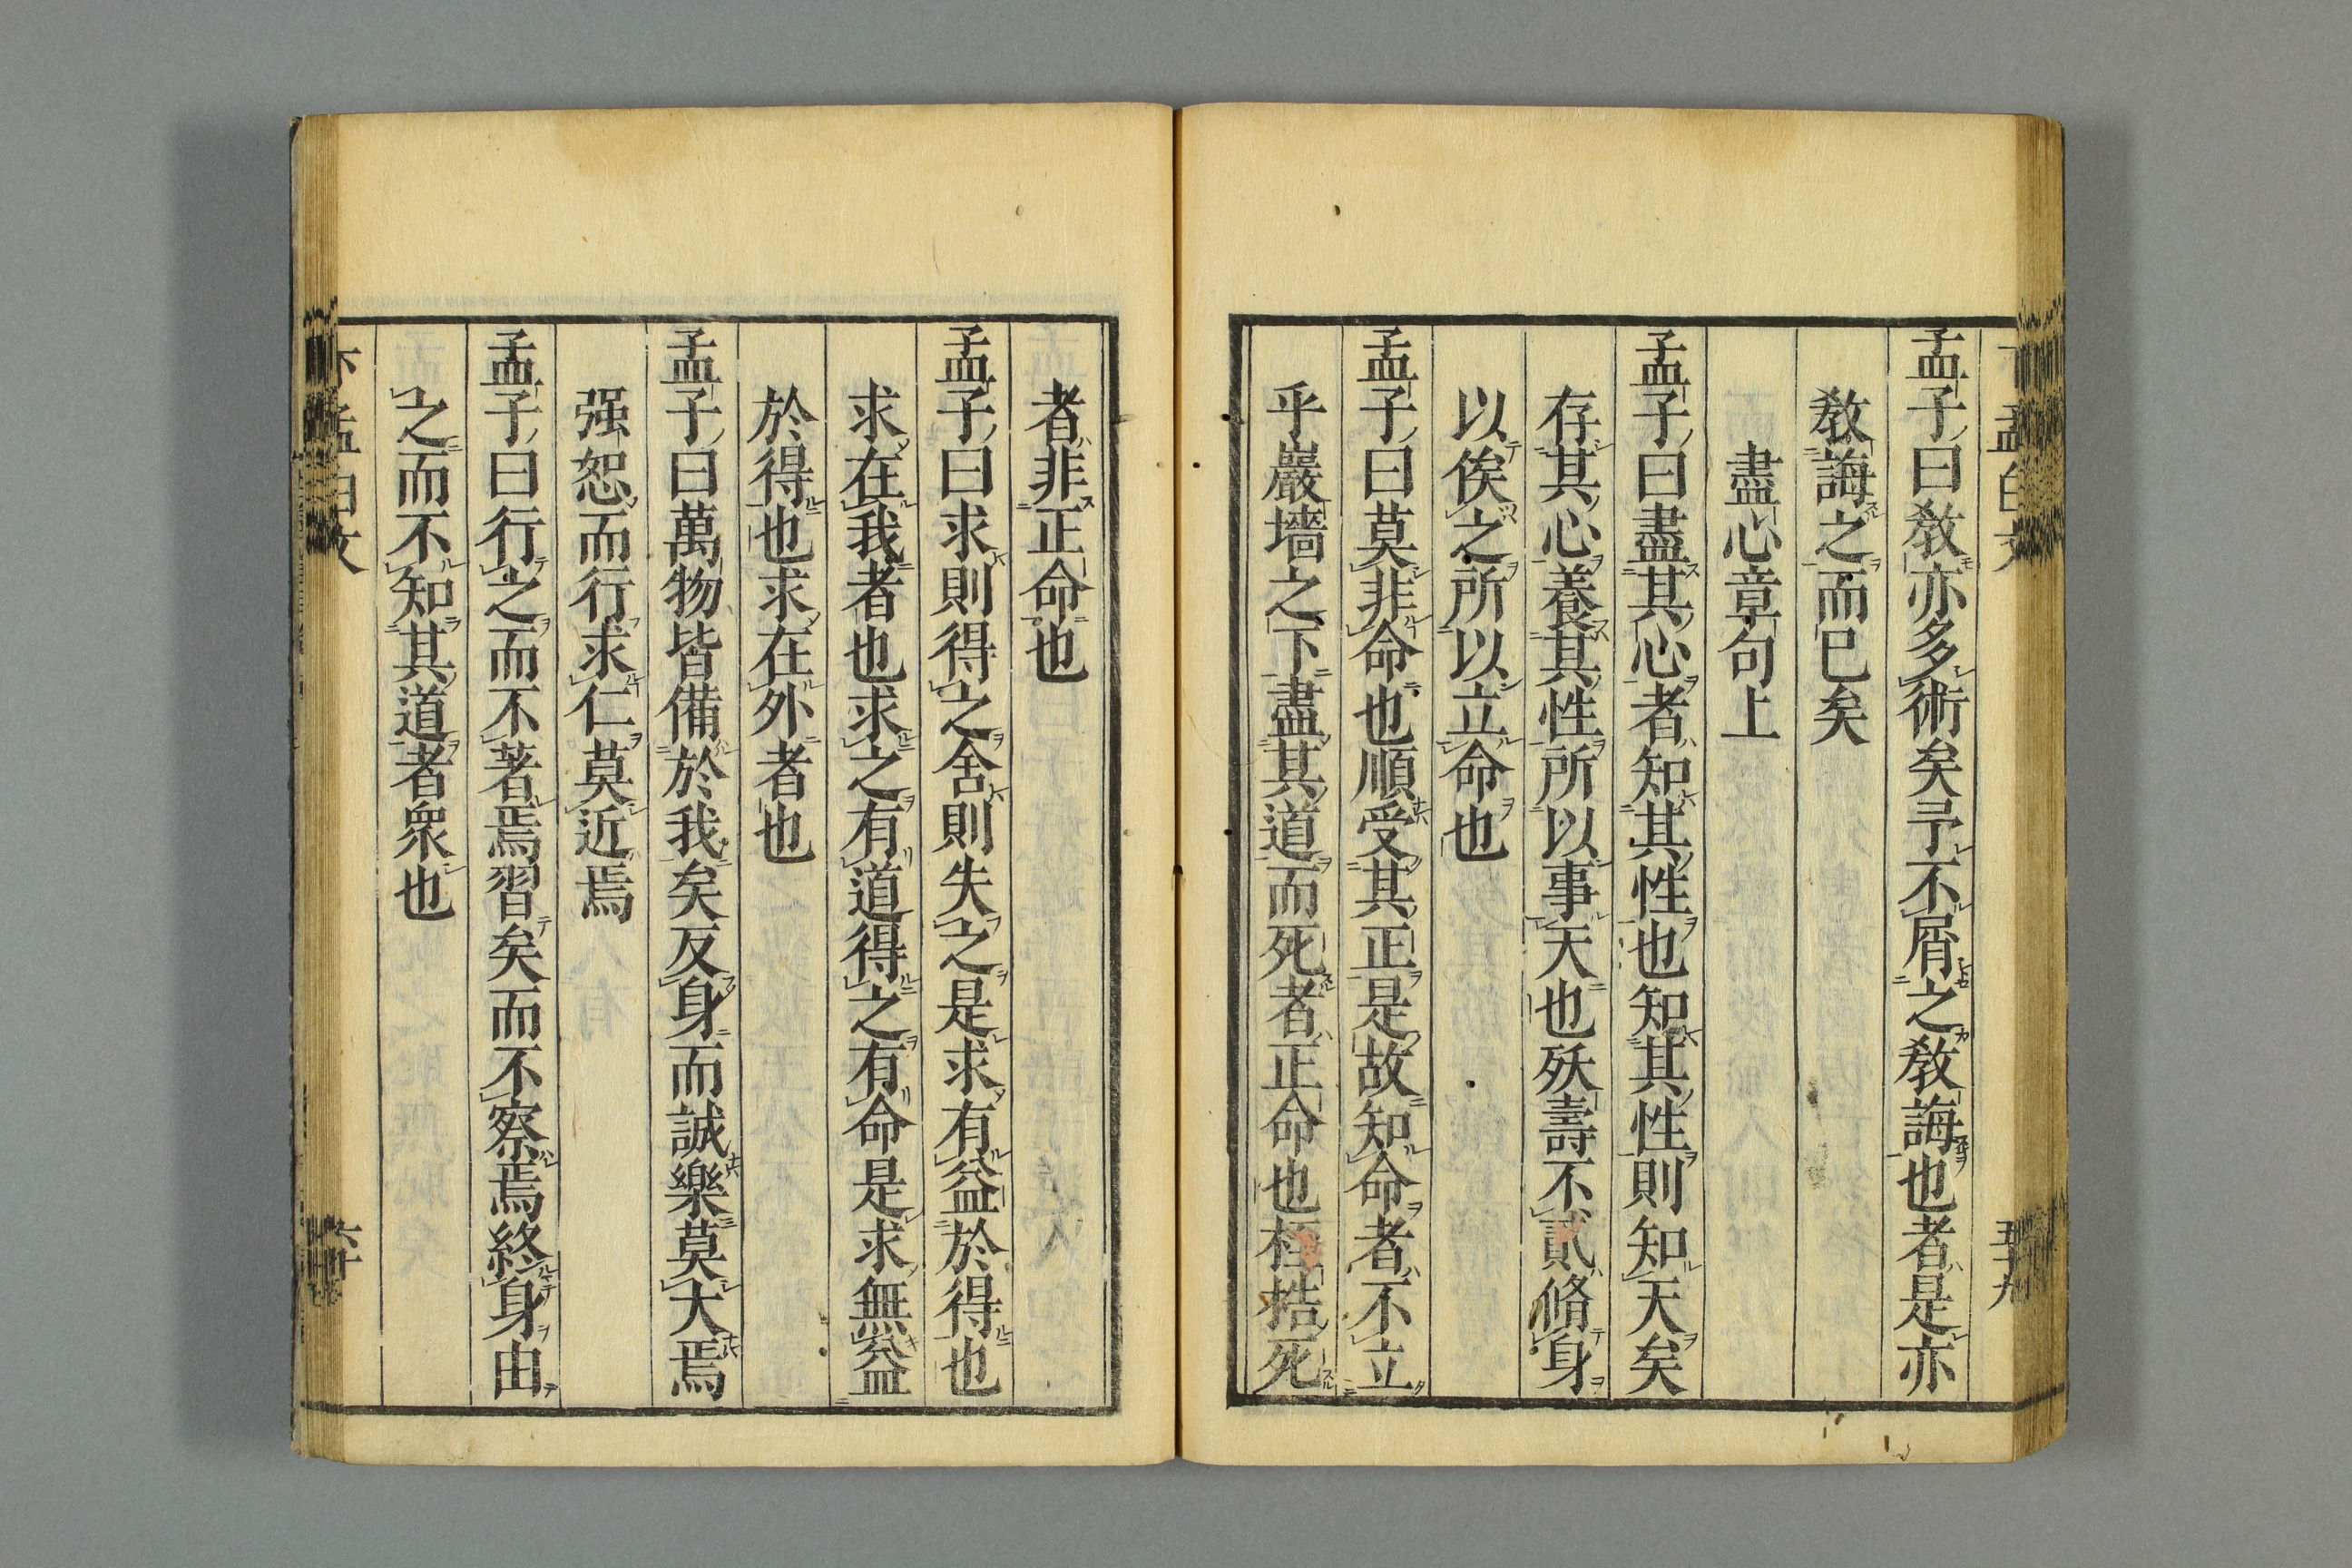 孟子曰教亦多術矣予不屑之教誨也者是亦
教誨之而已矣
盡心章句上
孟子曰盡其心者知其性也知其性則知天矣
存其心養其性所以事天也殀壽不貳脩身
以俟之所以立命也
孟子曰莫非命也順受其正是故知命者不立
乎巖墻之下盡其道而死者正命也桎梏死
五十九
者非正命也
孟子曰求則得之舍則失之是求有益於得也
求在我者也求之有道得之有命是求無益
於得也求在外者也
孟子曰萬物皆備於我矣反身而誠樂莫大焉
强恕而行求仁莫近焉
孟子曰行之而不著焉習矣而不察焉終身由
之而不知其道者衆也
六十